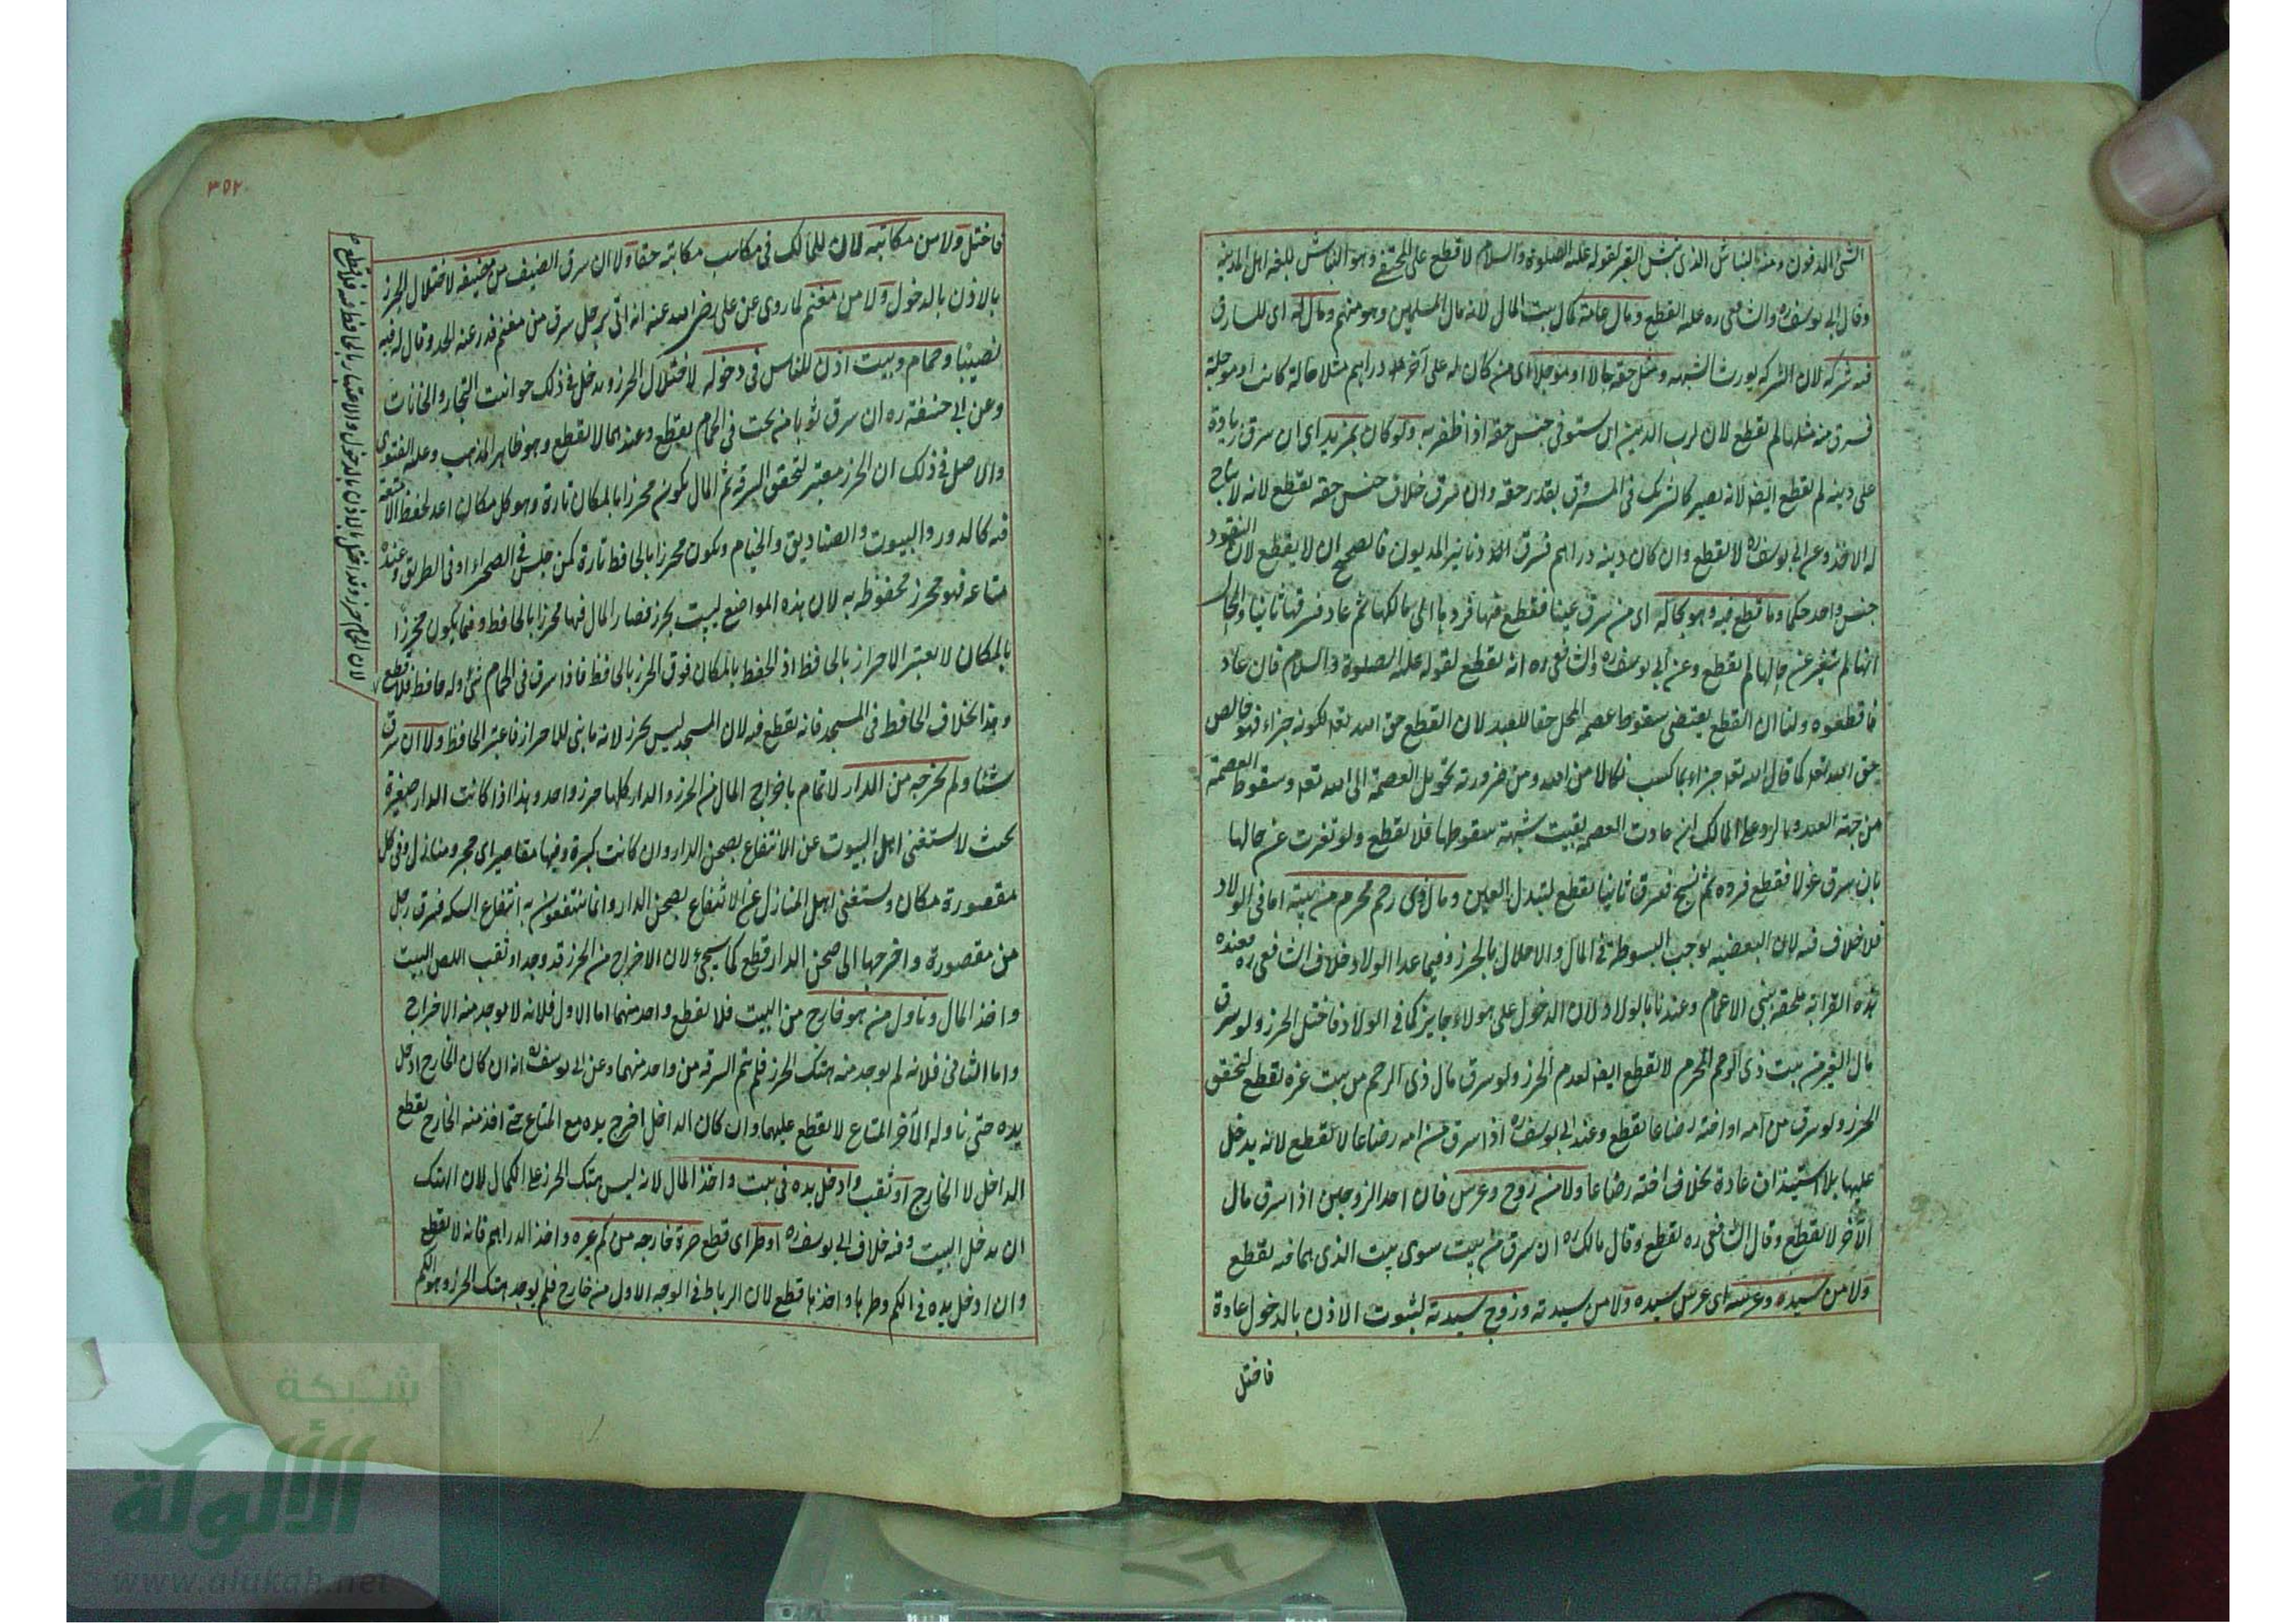 الشئ المدفون ومنه النباش الذى نبش القبر لقوله عليه الصلوة والسلام لا قطع على المختفى وهو النباش بلغة اهل المدينة
وقال ابى يوسف ره والشافعى ره عليه القطع ومال عامة كمال بيت المال لانه مال المسلمين وهو منهم ومال له اى للسارق
فيه شركة لان الشركة يورث الشبهة ومثل حقه حالا او مؤجلا اى من كان له على آخر عشرة دراهم مثلا حالة كانت او مؤجلة
فسرق منه مثلها لم يقطع لان لرب الدين ان يستوفى جنس حقه اذا ظفر به ولو كان بمزيد اى ان سرق زيادة
على دينه لم يقطع ايضا لانه يصير كالشريك فى المسروق بقدر حقه وان سرق خلاف جنس حقه يقطع لانه لا يباح
له الاخذ وعن ابى يوسف ره لا يقطع وان كان دينه دراهم فسرق دنانير المديون فالصحيح ان لا يقطع لان النقود
جنس واحد حكما وما قطع فيه وهو بحاله اى من سرق عينا فقطع فيها فردها الى مالكها ثم عاد فسرقها ثانيا والحال
انها لم تتغير عن حالها لم يقطع وعن ابى يوسف ره والشافعى ره انه يقطع لقوله عليه الصلوة والسلام فان عاد
فاقطعوه ولنا ان القطع يقتضى سقوط عصمة المحل حقا للعبد لان القطع حق الله تعا لكونه جزاء فهو خالص
حق الله تعا كما قال الله تعا جزاء بما كسب نكالا من الله ومن ضرورته تحويل العصمة الى الله تعا وسقوط العصمة
من جهة العبد وبالرد على المالك ان عادت العصمة بقيت شبهة سقوطها فلا يقطع ولو تغيرت عن حالها
بان سرق غزلا فقطع فرده ثم نسج فسرق ثانيا يقطع لتبدل العين ومال ذى رحم محرم من بيته اما فى الولاد
فلا خلاف فيه لان البعضية يوجب البسوطة فى المال والاخلال بالحرز وفيما عدا الولاد خلاف الشافعى ره فعنده
هذه القرابة ملحقة ببنى الاعمام وعندنا بالولاد لان الدخول على هولاء جايز كما فى الولاد فاختل الحرز ولو سرق
مال الغير من بيت ذى الرحم المحرم لا يقطع ايضا لعدم الحرز ولو سرق مال ذى الرحم من بيت غيره يقطع لتحقق
الحرز ولو سرق من امه او اخته رضاعا يقطع وعند ابى يوسف ره اذا سرق من امه رضاعا لا يقطع لانه يدخل
عليها بلا استيذان عادة بخلاف اخته رضاعا ولا من زوج وعرس فان احد الزوجين اذا سرق مال
الآخر لا يقطع وقال الشافعى ره يقطع وقال مالك ره ان سرق من بيت سوى بيت الذى هما فيه يقطع
ولا من سيده وعرسه اى عرس سيده ولا من سيدته وزوج سيدته لثبوت الاذن بالدخول عادة
فاختل
٣٥٢
فاختل ولا من مكاتبه لان للمالك فى مكاسب مكاتبه حقا ولا ان سرق الضيف من مضيفه لاختلال الحرز
بالاذن بالدخول ولا من مغنم لما روى عن على رضى الله عنه انه اتى برجل سرق من مغنم فدرء عنه الحد وقال له فيه
نصيبا وحمام وبيت اذن للناس فى دخوله لاختلال الحرز ويدخل فى ذلك حوانيت التجار والخانات
وعن ابى حنيفة ره ان سرق ثوبا من تحت فى الحمام يقطع وعندهما لا يقطع وهو ظاهر المذهب وعليه الفتوى
والاصل فى ذلك ان الحرز معتبر لتحقق السرقة ثم المال يكون محرزا بالمكان تارة وهو كل مكان اعد لحفظ الامتعة
فيه كالدور والبيوت والصناديق والخيام ويكون محرزا بالحافظ تارة كمن جلس فى الصحراء او فى الطريق وعنده
متاعه فهو محرز محفوظ به لان هذه المواضع ليست بحرز فصار المال فيها محرزا بالحافظ وفيما يكون محرزا
بالمكان لا يعتبر الاحراز بالحافظ اذ الحفظ بالمكان فوق الحرز بالحافظ فاذا سرق فى الحمام شئ وله حافظ فلا قطع
وهذا بخلاف الحافظ فى المسجد فانه يقطع فيه لان المسجد ليس بحرز لانه ما بنى للاحراز فاعتبر الحافظ ولا ان سرق
شيئا ولم يخرجه من الدار لا تمام باخراج المال من الحرز والدار كلها حرز واحد وهذا اذا كانت الدار صغيرة
بحيث لا يستغنى اهل البيوت عن الانتفاع بصحن الدار وان كانت كبيرة وفيها مقاصير اى حجر ومنازل وفى كل
مقصورة مكان ويستغنى اهل المنازل عن الانتفاع بصحن الدار وانما ينتفعون به انتفاع السكة فسرق رجل
من مقصورة واخرجها الى صحن الدار قطع كما سيجئ لان الاخراج من الحرز قد وجد او ثقب اللص البيت
واخذ المال وناول من هو خارج من البيت فلا يقطع واحد منهما اما الاول فلانه لا يوجد منه الاخراج
واما الثانى فلانه لم يوجد منه هتك الحرز فلم يتم السرقة من واحد منهما وعن ابى يوسف ره انه ان كان الخارج ادخل
يده حتى ناوله الآخر المتاع لا يقطع عليهما وان كان الداخل اخرج يده مع المتاع حتى اخذ منه الخارج يقطع
الداخل لا الخارج او ثقب وادخل يده فى بيت واخذ المال لانه ليس هتك الحرز على الكمال لان الهتك
ان يدخل البيت وفيه خلاف ابى يوسف ره او طر اى قطع صرة خارجة من كم غيره واخذ الدراهم فانه لا يقطع
وان ادخل يده فى الكم وطرها واخذها قطع لان الرباط فى الوجه الاول من خارج فلم يوجد هتك الحرز وهو الكم
لان الحمام حرز وقد اختل بالاذن بالدخول والاعتبار بالحافظ فيه فلا قطع
شبكة
الألوكة
www.alukah.net